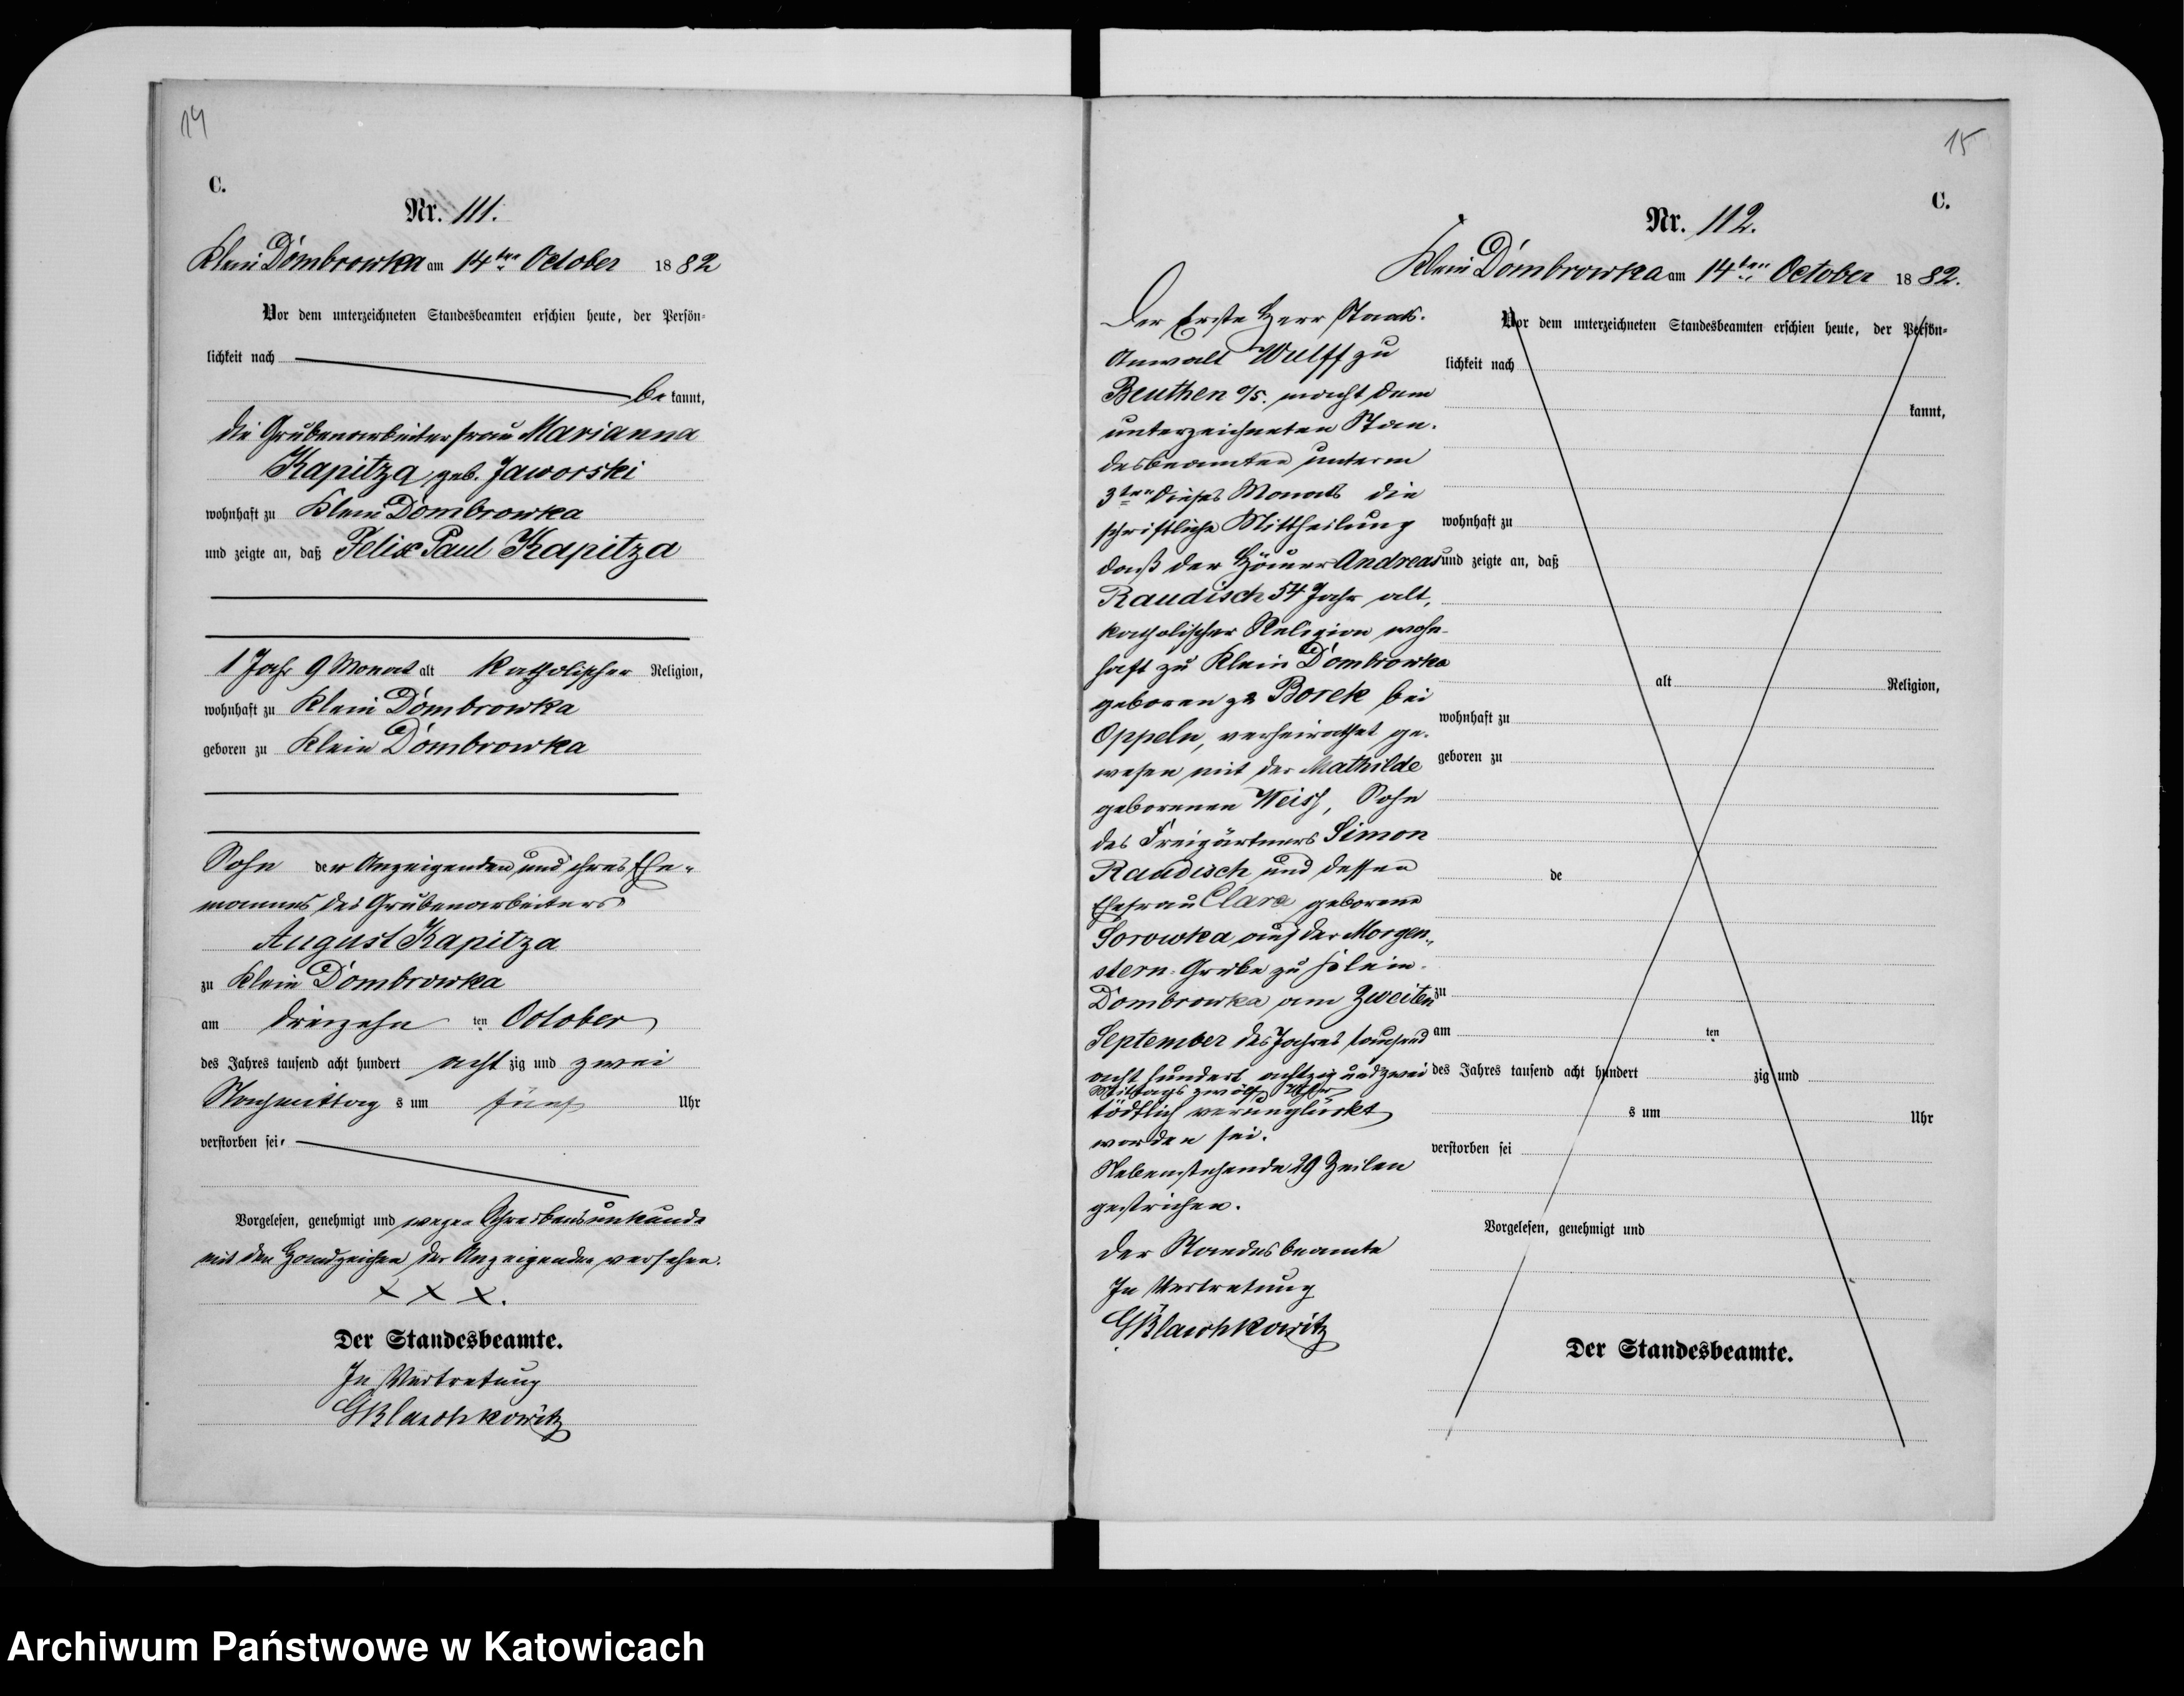 14
C.
Nr. 111.
Klein Dombrowka am 14ten October 1882
Vor dem unterzeichneten Standesbeamten erschien heute, der Persön-
lichkeit nach
be kannt,
die Grubenarbeiterfrau Marianna
Kapitza, geb. Jaworski
wohnhaft zu Klein Dombrowka
und zeigte an, daß Felix Paul Kapitza
1 Jahr 9 Monat alt katholischer Religion,
wohnhaft zu Klein Dombrowka
geboren zu Klein Dombrowka
Sohn der Anzeigenden und ihres Ehe-
mannes des Grubenarbeiters
August Kapitza
zu Klein Dombrowka
am dreizehn ten October
des Jahres tausend acht hundert acht zig und zwei
Nachmittag s um fünf Uhr
verstorben sei.
Vorgelesen, genehmigt und wegen Schreibensunkunde
mit den Handzeichen der Anzeigenden versehen.
x x x.
Der Standesbeamte.
In Vertretung
GBlaschkowitz
15
C.
Nr. 112.
Klein Dombrowka am 14ten October 1882.
Der Erste Herr Staats-
Anwalt Wulff zu
Beuthen O/S. macht dem
unterzeichneten Stan-
desbeamten unterm
3ten dieses Monats die
schriftliche Mittheilung
daß der Häuer Andreas
Raudisch 54 Jahr alt,
katholischer Religion wohn-
haft zu Klein Dombrowka
geboren zu Borek bei
Oppeln, verheirathet ge-
wesen mit der Mathilde
geborenen Weiss, Sohn
des Freigärtners Simon
Raudisch und dessen
Ehefrau Clara geborene
Sorowka auf der Morgen-
stern-Grube zu Klein-
Dombrowka am Zweiten
September des Jahres tausend
acht hundert achtzig und zwei
Mittags zwölf Uhr
tödtlich verunglückt
worden sei.
Nebenstehende 29 Zeilen
gestrichen.
Der Standesbeamte
In Vertretung
GBlaschkowitz
Vor dem unterzeichneten Standesbeamten erschien heute, der Persön-
lichkeit nach
kannt,
wohnhaft zu
und zeigte an, daß
alt Religion,
wohnhaft zu
geboren zu
de
zu
am ten
des Jahres tausend acht hundert zig und
s um Uhr
verstorben sei
Vorgelesen, genehmigt und
Der Standesbeamte.
Archiwum Państwowe w Katowicach